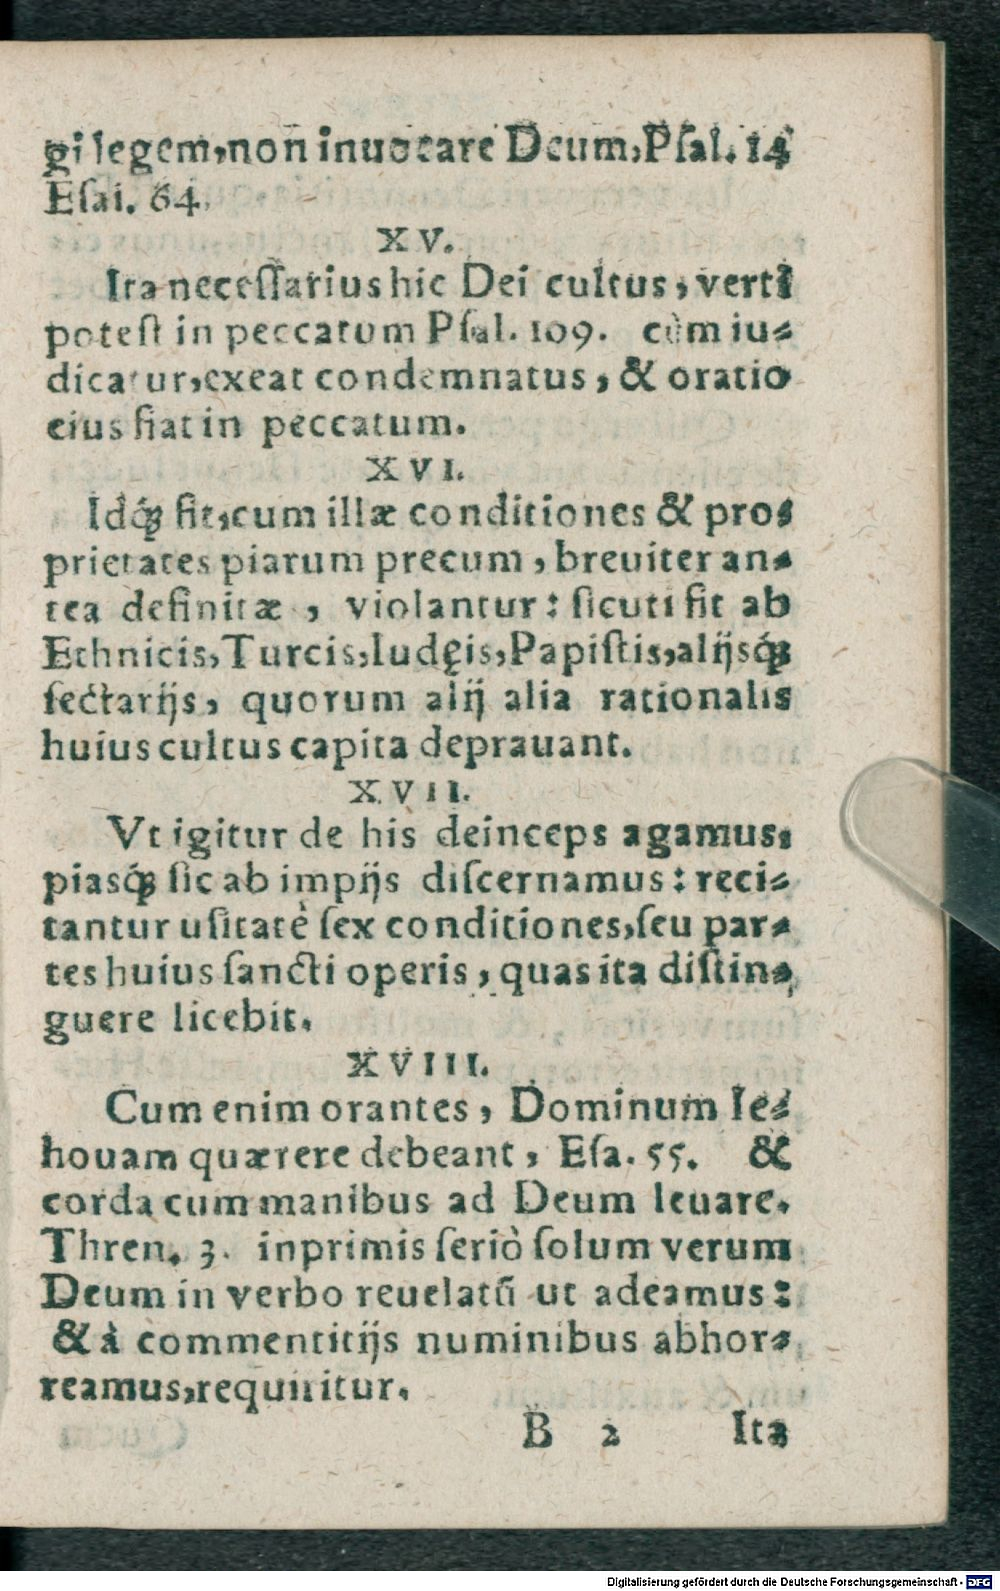 gi legem, non inuocare Deum, Psal. 14
Esai. 64.
XV.
Ita necessarius hic Dei cultus, verti
potest in peccatum Psal. 109. cùm iu-
dicatur, exeat condemnatus, & oratio
eius fiat in peccatum.
XVI.
Idq́; fit, cum illæ conditiones & pro-
prietates piarum precum, breuiter an-
tea definitæ, violantur: sicuti fit ab
Ethnicis, Turcis, Iudęis, Papistis, alijsq́;
sectarijs, quorum alij alia rationalis
huius cultus capita deprauant.
XVII.
Vt igitur de his deinceps agamus,
piasq́; sic ab impijs discernamus: reci-
tantur usitatè sex conditiones, seu par-
tes huius sancti operis, quas ita distin-
guere licebit.
XVIII.
Cum enim orantes, Dominum Ie-
houam quærere debeant, Esa. 55. &
corda cum manibus ad Deum leuare.
Thren. 3. inprimis seriò solum verum
Deum in verbo reuelatū ut adeamus:
& à commentitijs numinibus abhor-
reamus, requiritur.
B 2 Ita
Digitalisierung gefördert durch die Deutsche Forschungsgemeinschaft - DFG